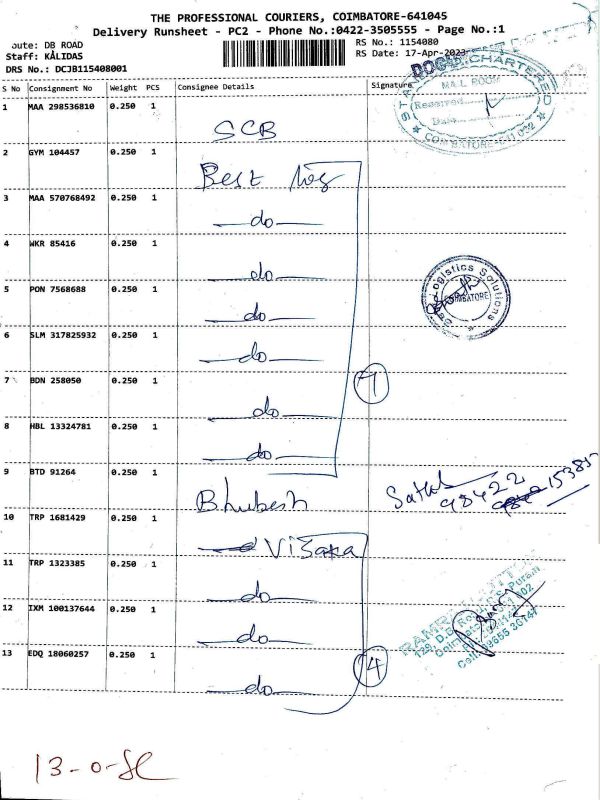 THE PROFESSIONAL COURIERS, COIMBATORE-641045
Delivery Runsheet - PC2 - Phone No.:0422-3505555 - Page No.:1
oute: DB ROAD
RS No.: 1154080
Staff: KALIDAS
RS Date: 17-Apr-2023
DRS No.: DCJB115408001
S No Consignment No Weight PCS Consignee Details Signature
1 MAA 298536810 0.250 1
SCB
2 GYM 104457 0.250 1
Best log
3 MAA 570768492 0.250 1
do
4 WKR 85416 0.250 1
do
5 PON 7568688 0.250 1
do
6 SLM 317825932 0.250 1
do
7 BDN 258050 0.250 1
do
8 HBL 13324781 0.250 1
do
7
9 BTD 91264 0.250 1
Bhubesh
98422 15385
10 TRP 1681429 0.250 1
Visaka
11 TRP 1323385 0.250 1
do
12 IXM 100137644 0.250 1
do
13 EDQ 18060257 0.250 1
do
4
MAIL ROOM
Received
Date
COIMBATORE-641 002
Logistics Solutions
COIMBATORE
13-0-